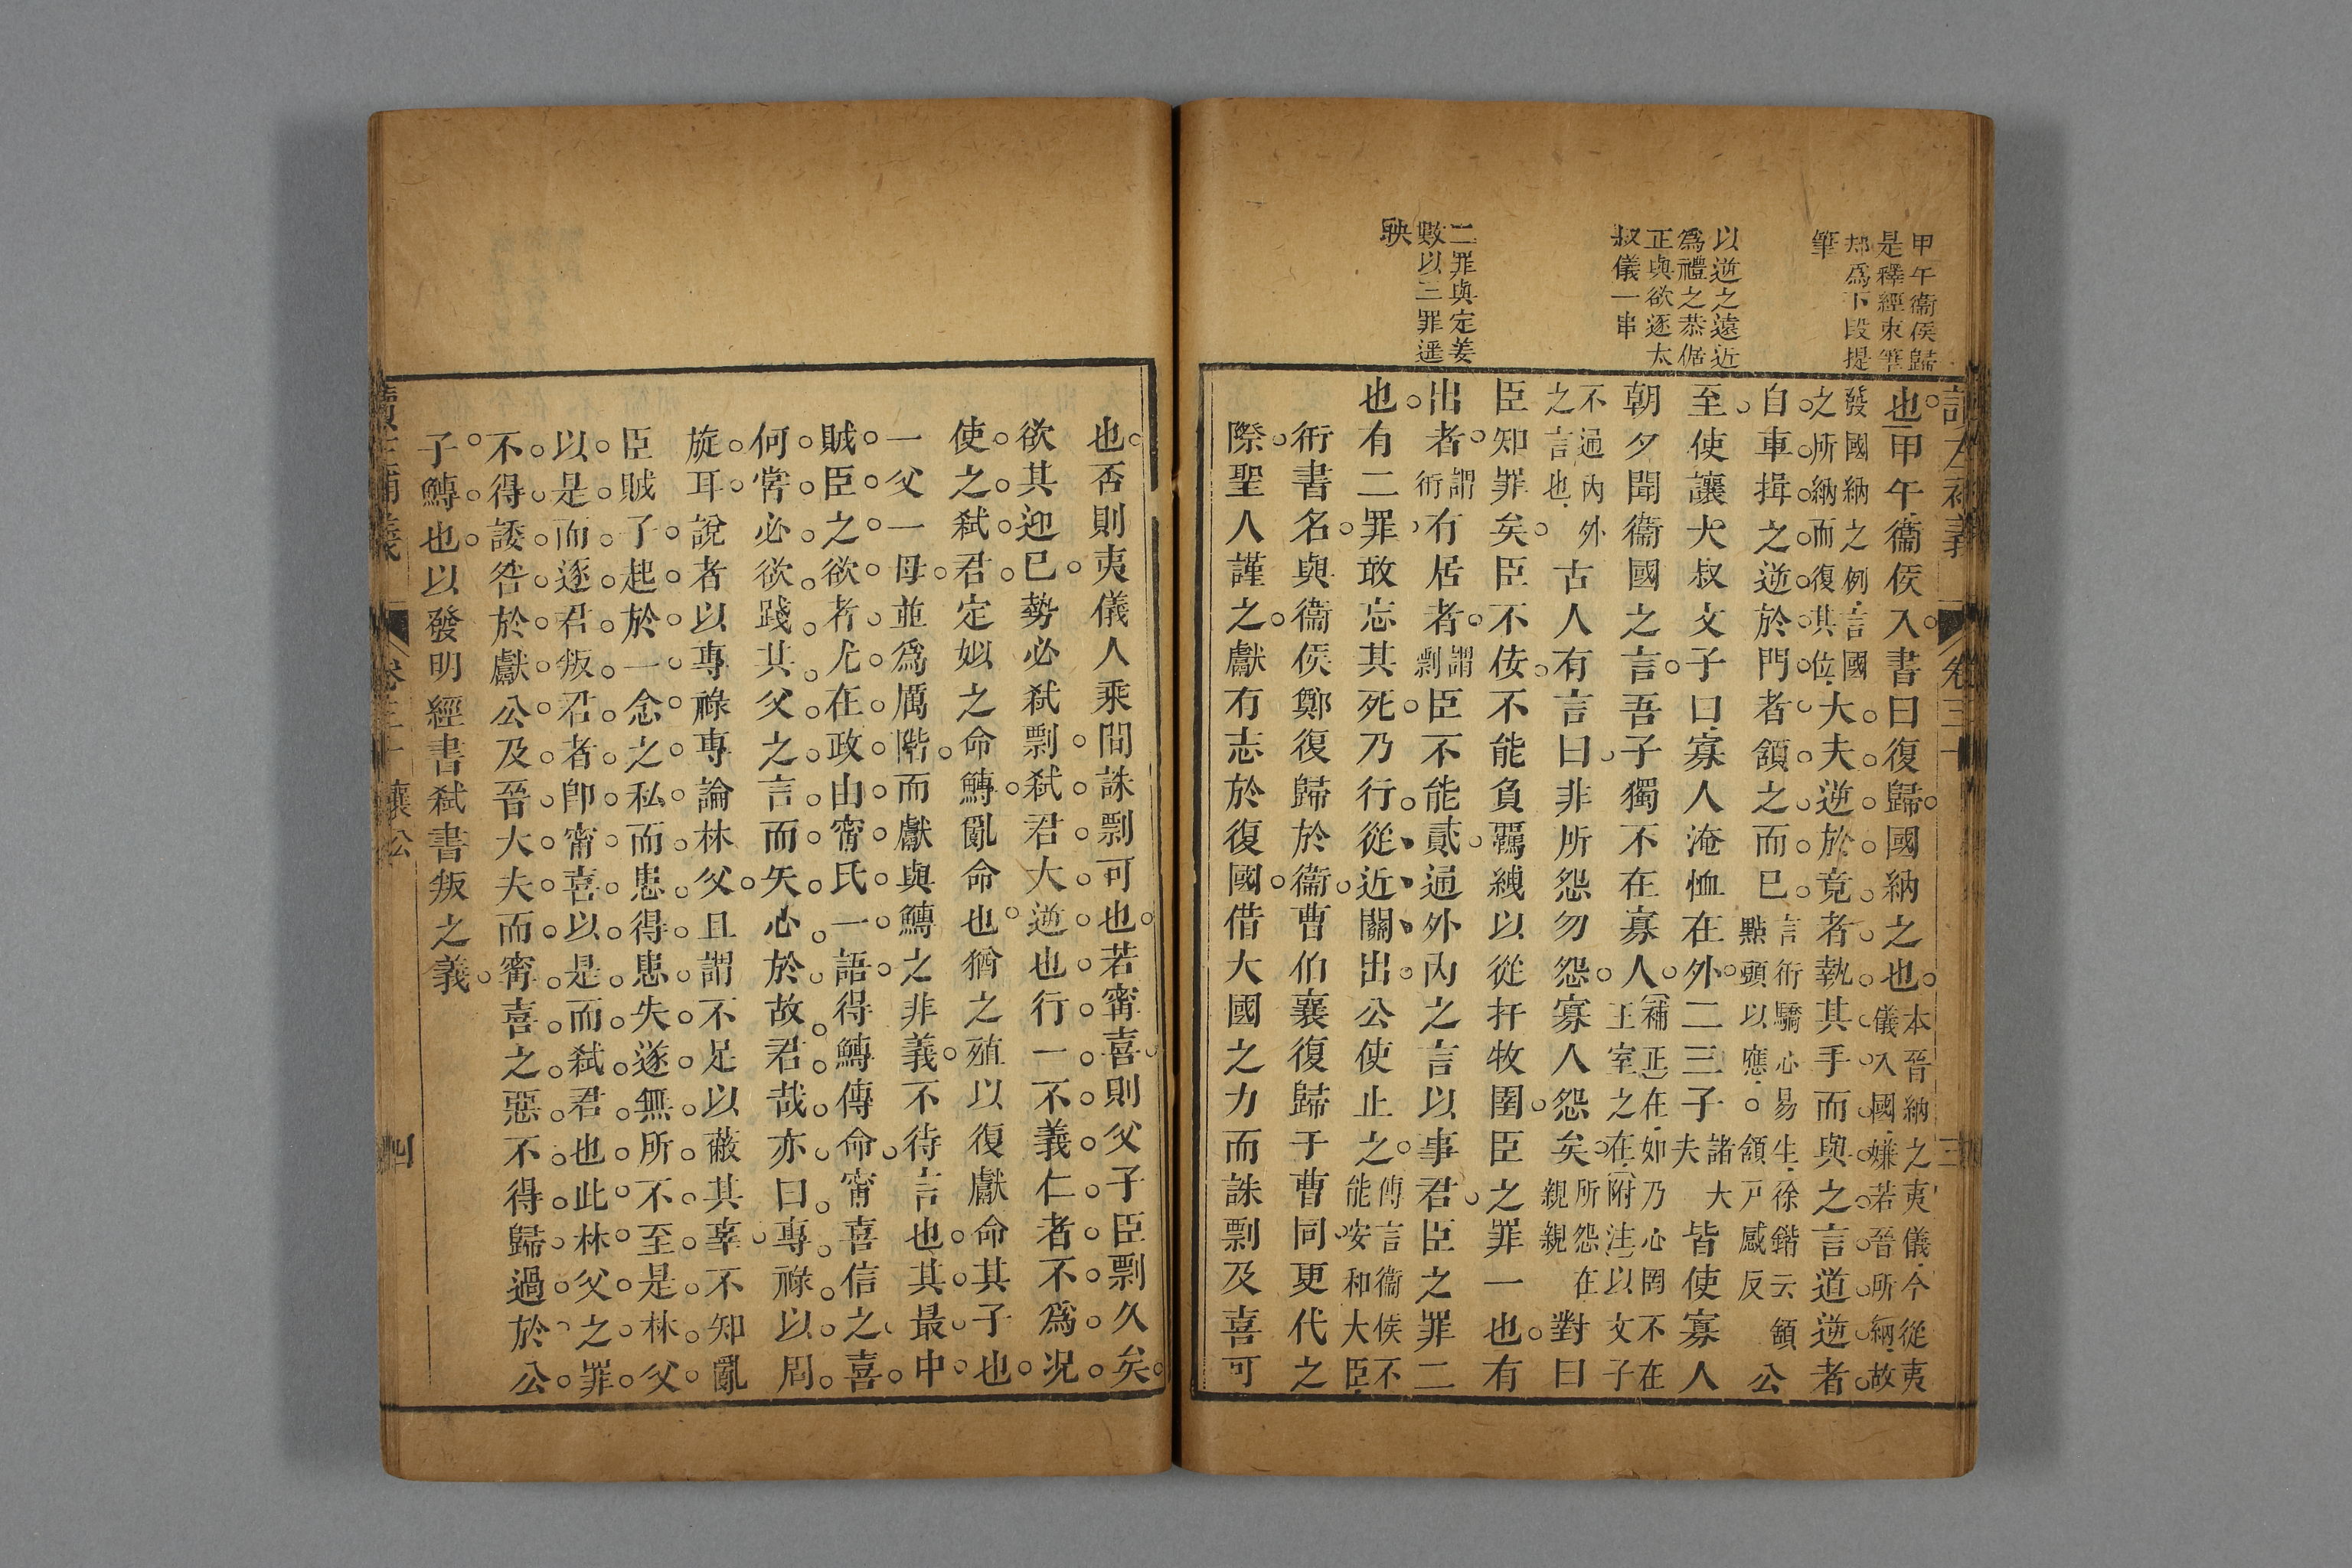 甲午衞侯歸
是釋經東筆
却爲下段提
筆
以逆之遠近
爲禮之恭倨
正與欲逐太
叔儀一串
二罪與定姜
數以三罪遥
映
讀左補義
卷三十
三
也甲午衞侯入書曰復歸國納之也本晉納之夷儀今從夷儀入國嫌若晉所納故
發國納之例言國之所納而復其位大夫逆於竟者執其手而與之言道逆者
自車揖之逆於門者頷之而已言衎驕心易生徐鍇云頷點頭以應頷戸感反公
至使讓大叔文子曰寡人淹恤在外二三子諸大夫皆使寡人
朝夕聞衞國之言吾子獨不在寡人補正在如乃心罔不在王室之在附注以文子
不通内外之言也古人有言曰非所怨勿怨寡人怨矣所怨在親親對曰
臣知罪矣臣不佞不能負羈絏以從扞牧圉臣之罪一也有
出者謂衎有居者謂剽臣不能貳通外內之言以事君臣之罪二
也有二罪敢忘其死乃行從近關出公使止之傳言衞侯不能安和大臣
衎書名與衞侯鄭復歸於衞曹伯襄復歸于曹同更代之
際聖人謹之獻有志於復國借大國之力而誅剽及喜可
也否則夷儀人乘間誅剽可也若甯喜則父子臣剽久矣
欲其迎已勢必弑剽弑君大逆也行一不義仁者不爲况
使之弑君定姒之命鱄亂命也猶之殖以復獻命其子也
一父一母並爲厲階而獻與鱄之非義不待言也其最中
賊臣之欲者尤在政由甯氏一語得鱄傳命甯喜信之喜
何嘗必欲踐其父之言而矢心於故君哉亦曰專祿以周
旋耳說者以專祿專論林父且謂不足以蔽其辜不知亂
臣賊子起於一念之私而患得患失遂無所不至是林父
以是而逐君叛君者卽甯喜以是而弑君也此林父之罪
不得諉咎於獻公及晉大夫而甯喜之惡不得歸過於公
子鱄也以發明經書弑書叛之義
讀左補義
卷三十 襄公